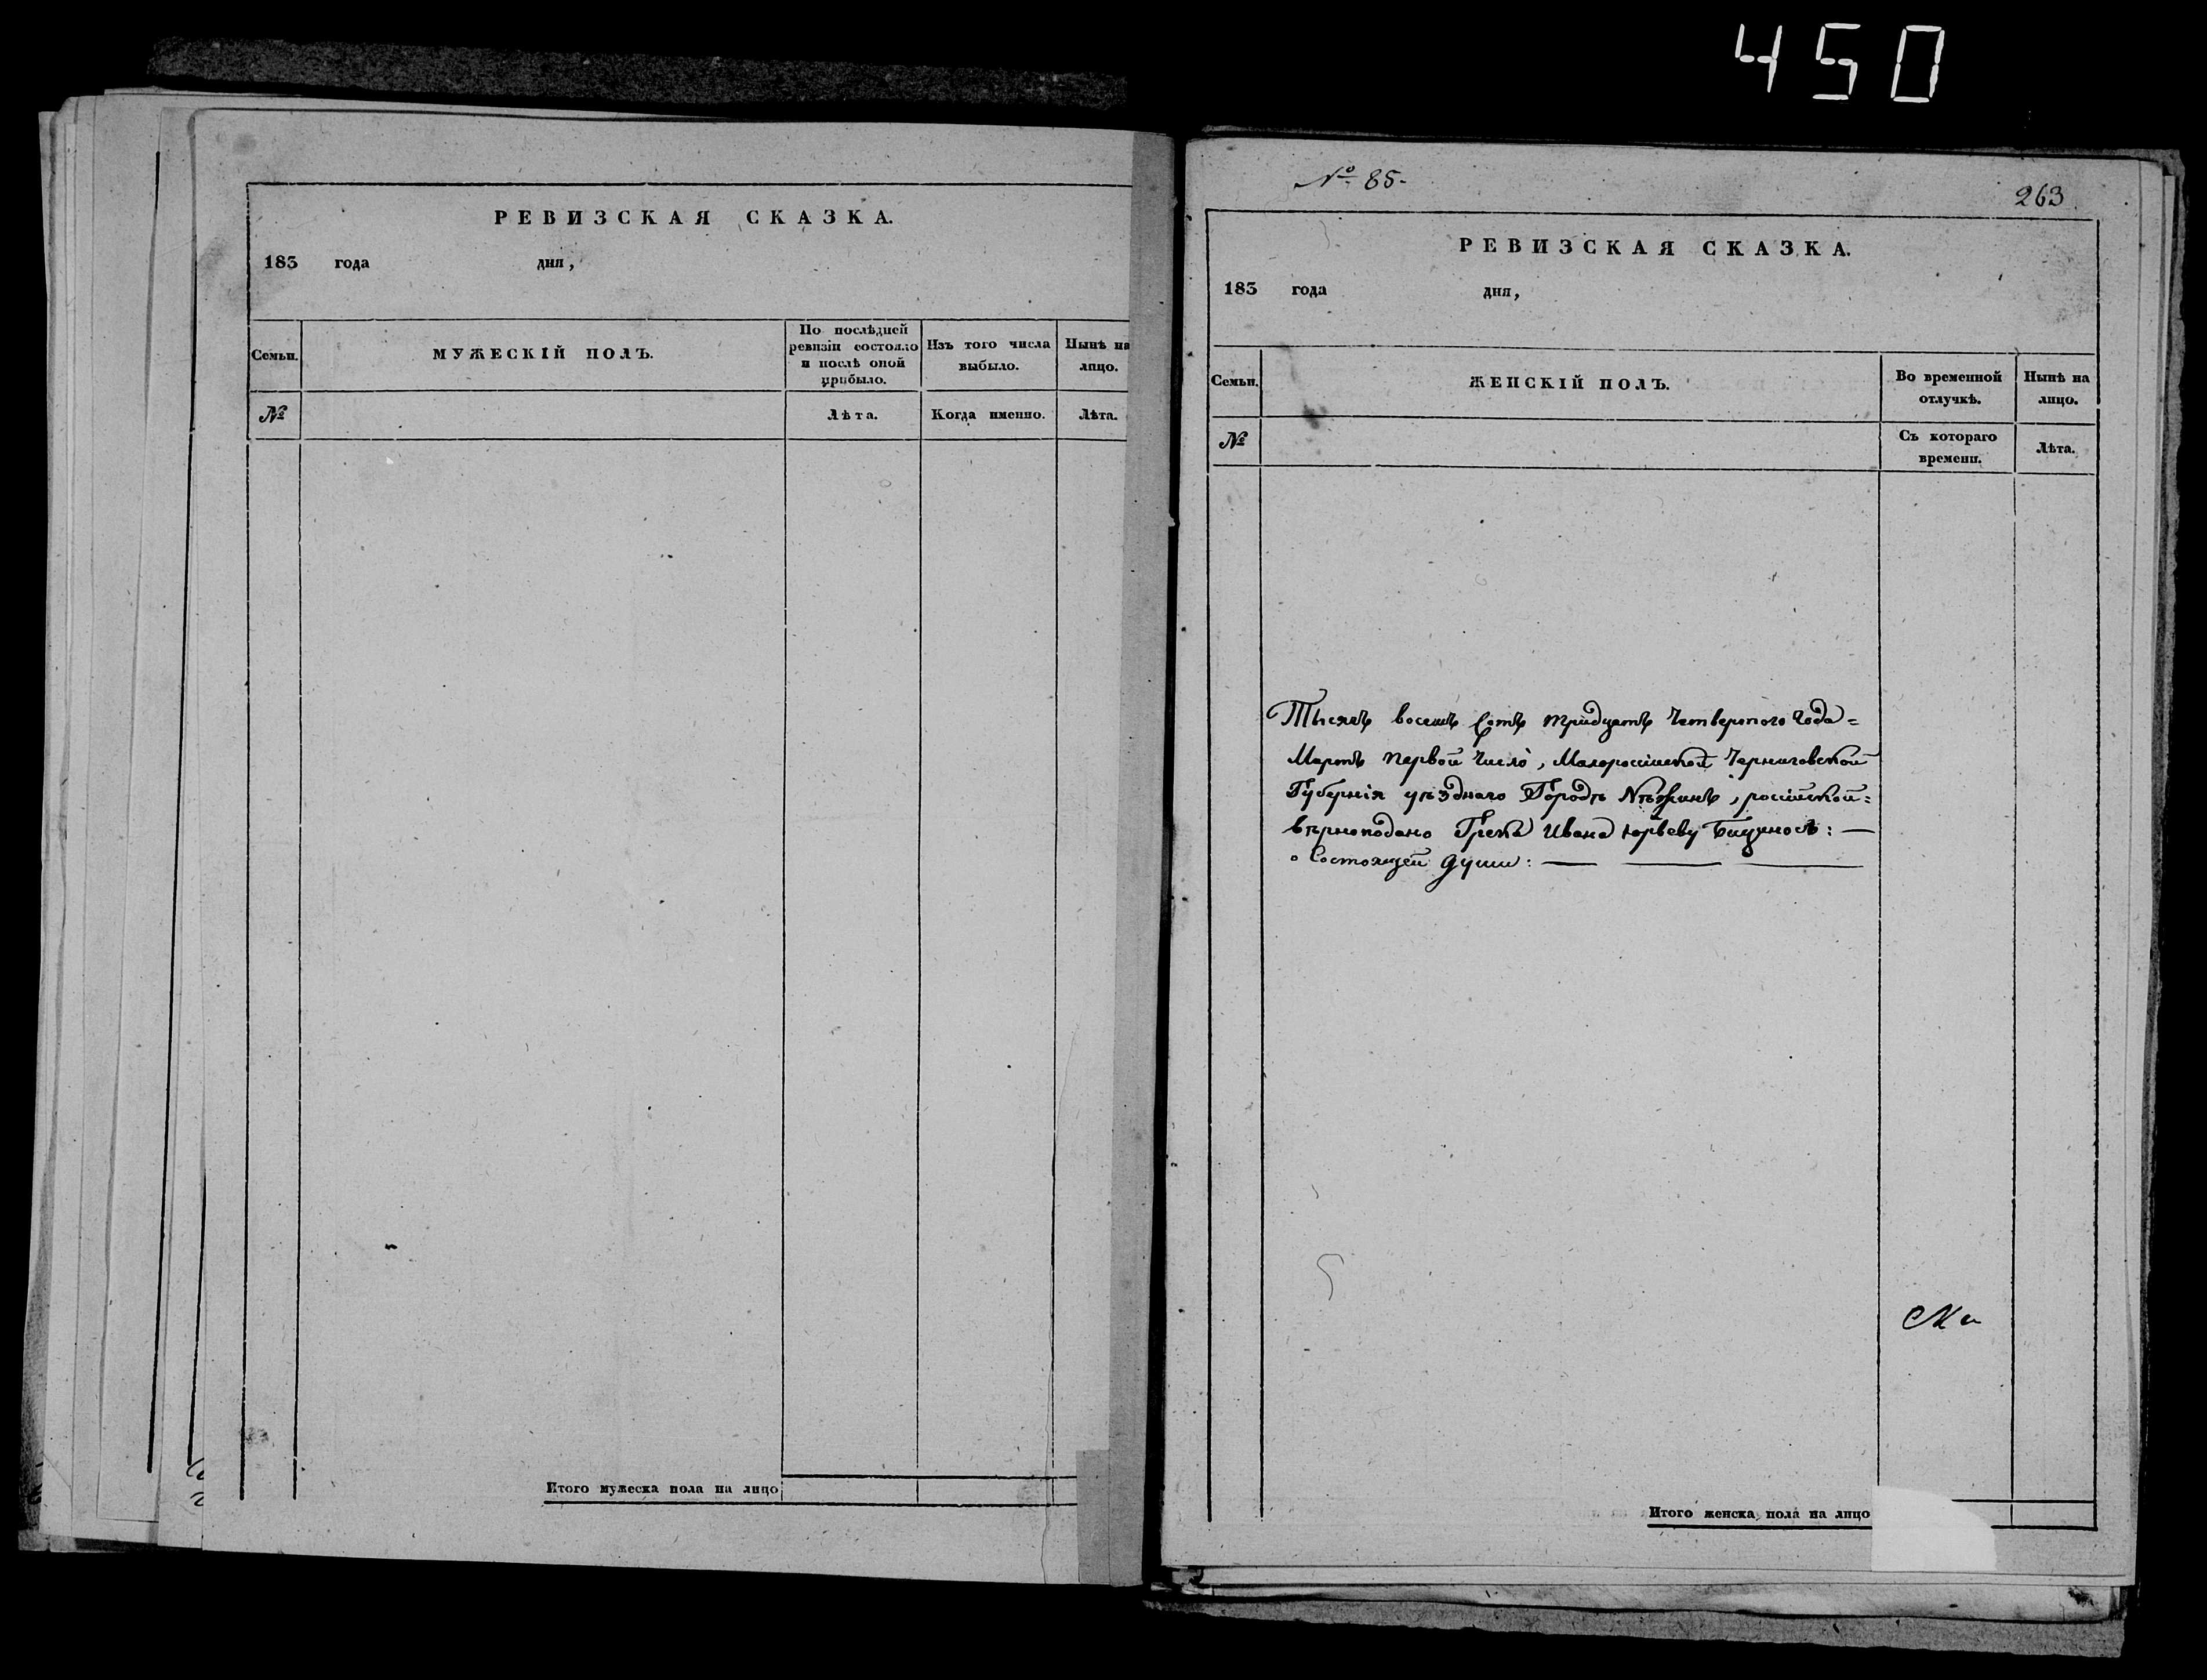 450
РЕВИЗСКАЯ СКАЗКА.
183 года дня,
Семьи.
МУЖЕСКІЙ ПОЛЪ.
По послѣдней ревизіи состояло и послѣ оной прибыло.
Изъ того числа выбыло.
Нынѣ на лицо.
№
Лѣта.
Когда именно.
Лѣта.
Итого мужеска пола на лицо
№ 85.
263
РЕВИЗСКАЯ СКАЗКА.
183 года дня,
Семьи.
ЖЕНСКІЙ ПОЛЪ.
Во временной отлучкѣ.
Нынѣ на лицо.
№
Съ котораго времени.
Лѣта.
Тысячъ восемъ сотъ тридцатъ четвертого года =
Мартъ первой число, Малоросіиской Черниговской
Губернія уѣзднаго Городѣ Нѣжинѣ, росіиской =
вѣрноподано Грека Ивана Юрьеву : —
о состоящей души : — — —
Итого женска пола на лицо